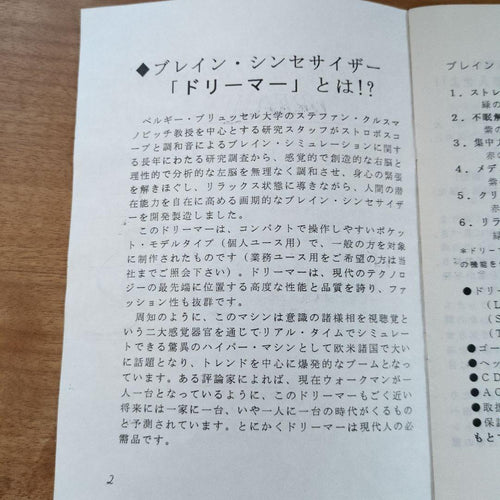 ◆ブレイン・シンセサイザー
「ドリーマー」とは!?
ベルギー・ブリュッセル大学のステファン・クルスマ
ノビッチ教授を中心とする研究スタッフがストロボスコ
ープと調和音によるブレイン・シミュレーションに関す
る長年にわたる研究調査から、感覚的で創造的な右脳と
理性的で分析的な左脳を無理なく調和させ、身心の緊張
を解きほぐし、リラックス状態に導きながら、人間の潜
在能力を自在に高める画期的なブレイン・シンセサイザ
ーを開発製造しました。
このドリーマーは、コンパクトで操作しやすいポケッ
ト・モデルタイプ(個人ユース用)で、一般の方を対象
に制作されたものです(業務ユース用をご希望の方は当
社までご照会下さい)。ドリーマーは、現代のテクノロ
ジーの最先端に位置する高度な性能と品質を誇り、ファ
ッション性も抜群です。
周知のように、このマシンは意識の諸様相を視聴覚と
いう二大感覚器官を通じてリアル・タイムでシミュレー
トできる驚異のハイパー・マシンとして欧米諸国で大い
に話題となり、トレンドを中心に爆発的なブームとなっ
ています。ある評論家によれば、現在ウォークマンが一
人一台となっているように、このドリーマーもごく近い
将来には一家に一台、いや一人に一台の時代がくるもの
と予測されています。とにかくドリーマーは現代人の必
需品です。
2
ブレイン・
1.ストレ
緑の
2.不眠解
紫の
3.集中力
赤の
4.メデ
紫の
5.クリ
赤
6.リラ
緑
※ドリー
の機能を
●ドリー
(L
(S
(T
●ゴー
●ヘッ
●CD
●AC
●取扱
●保証
もと